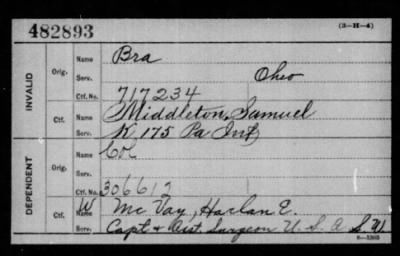 482893
(3-H-4)
INVALID
Orig.
Name Bra
Serv. Ohio
Ctf. No. 717234
Ctf.
Name Middleton, Samuel
Serv. K, 175 Pa Inf
DEPENDENT
Orig.
Name Col
Serv.
Ctf. No. 306612
Ctf.
W
Name Mc Vay, Harlan E.
Serv. Capt + Asst. Surgeon U. S. A